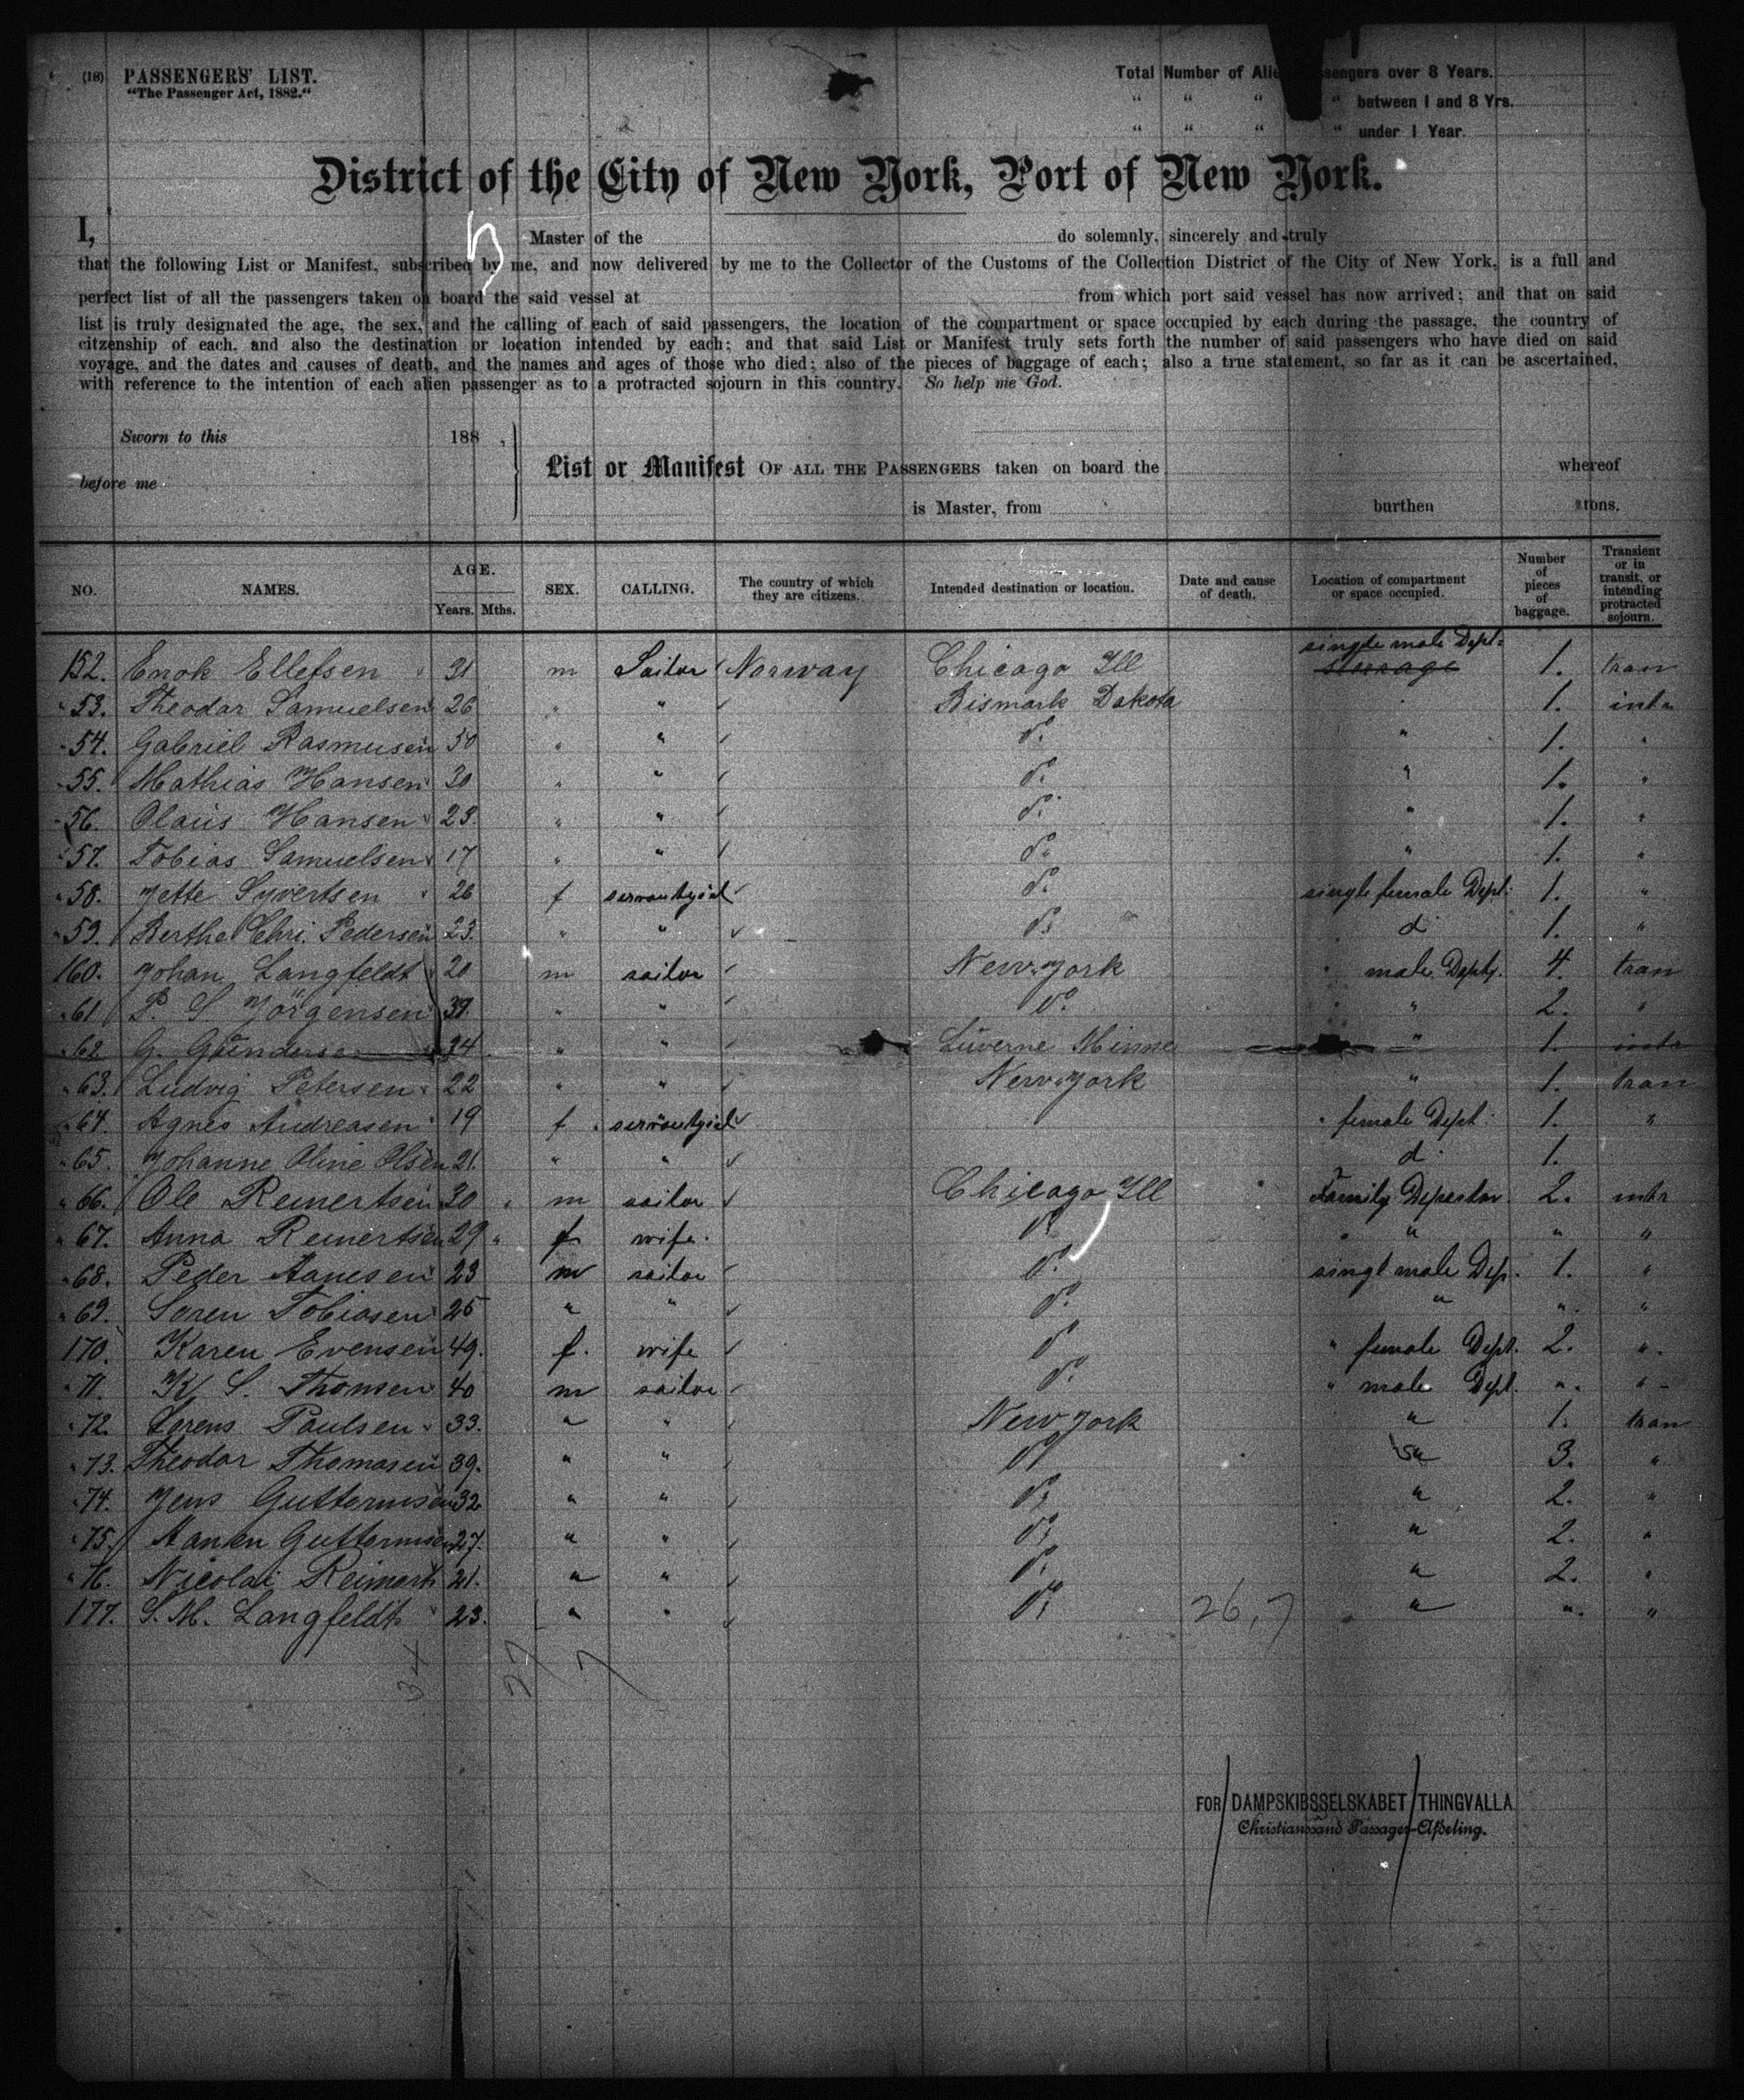 (18) PASSENGERS' LIST.
"The Passenger Act, 1882."
Total Number of Alien Passengers over 8 Years.
" " " " between 1 and 8 Yrs.
" " " " under 1 Year.
District of the City of New York, Port of New York.
I, Master of the do solemnly, sincerely and truly
that the following List or Manifest, subscribed by me, and now delivered by me to the Collector of the Customs of the Collection District of the City of New York, is a full and
perfect list of all the passengers taken on board the said vessel at from which port said vessel has now arrived; and that on said
list is truly designated the age, the sex, and the calling of each of said passengers, the location of the compartment or space occupied by each during the passage, the country of
citzenship of each, and also the destination or location intended by each; and that said List or Manifest truly sets forth the number of said passengers who have died on said
voyage, and the dates and causes of death, and the names and ages of those who died; also of the pieces of baggage of each; also a true statement, so far as it can be ascertained,
with reference to the intention of each alien passenger as to a protracted sojourn in this country. So help me God.
Sworn to this 188 ,
before me
List or Manifest OF ALL THE PASSENGERS taken on board the whereof
is Master, from burthen tons.
NO. NAMES. AGE. Years. Mths. SEX. CALLING. The country of which they are citizens. Intended destination or location. Date and cause of death. Location of compartment or space occupied. Number of pieces of baggage. Transient or in transit, or intending protracted sojourn.
152. Enok Ellefsen 21 m Sailor Norway Chicago Ill single male Dept: steerage 1. tran
" 53. Theodor Samuelsen 26 " " Bismark Dakota 1. intr
" 54. Gabriel Rasmusen 50 " " do. " 1. "
" 55. Mathias Hansen 30 " " do. " 1. "
" 56. Olaus Hansen 23. " " do. " 1. "
" 57. Tobias Samuelsen 17 " " do. " 1. "
" 58. Jette Syvertsen 26 f servantgirl do. single female Dept: 1. "
" 59. Berthe Chri. Pedersen 23. " " do. d 1. "
160. Johan Langfeldt 20 m sailor New York " male Dept. 4. tran
" 61 P. S Jörgensen 39. " " do. " 2. "
" 62 G. Gundersen 34 " " Luverne Minne " 1. intr
" 63. Ludvig Petersen 22 " " New York " 1. tran
" 64. Agnes Andreasen 19 f servantgirl " female Dept: 1. "
" 65. Johanne Oline Olsen 21. " " d 1.
" 66. Ole Reinertsen 30 m sailor Chicago Ill Family Depertm. 2. intr
" 67. Anna Reinertsen 29 f wife. do " " "
" 68. Peder Aanesen 23 m sailor do. singl male Dep. 1. "
" 69. Soren Tobiasen 25 " " do. " " "
170. Karen Evensen 49. f. wife do " female Dept. 2. "
" 71. K. S. Thomsen 40 m sailor do. " male Dept. " "
" 72. Lorens Paulsen 33. " " New York " 1. tran
" 73. Theodor Thomasen 39. " " do " 3. "
" 74. Jens Guttormsen 32 " " do. " 2. "
" 75. Aanen Guttormsen 27. " " do. " 2. "
" 76. Nicolai Reimert 21. " " do. " 2. "
177. S. M. Langfeldt 23. " " do. 26,7 " " "
34 27 7
FOR DAMPSKIBSSELSKABET THINGVALLA
Christianssand Passager-Afdeling.